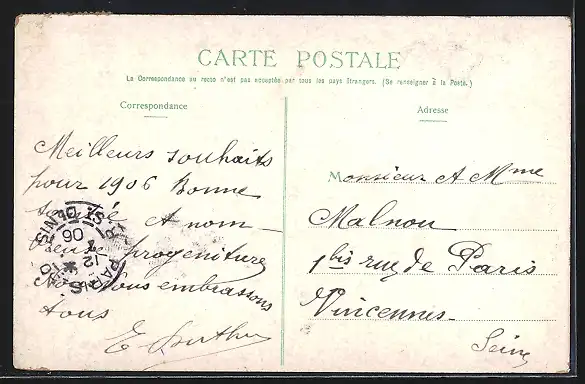 CARTE POSTALE
La Correspondance au recto n'est pas acceptée par tous les pays étrangers. (Se renseigner à la Poste.)
Correspondance
Meilleurs souhaits
pour 1906 Bonne
santé et nom-
breuse progeniture
Nous vous embrassons
tous
Adresse
Monsieur et Mme
Malnou
1 bis rue de Paris
Vincennes
Seine
PARIS
06